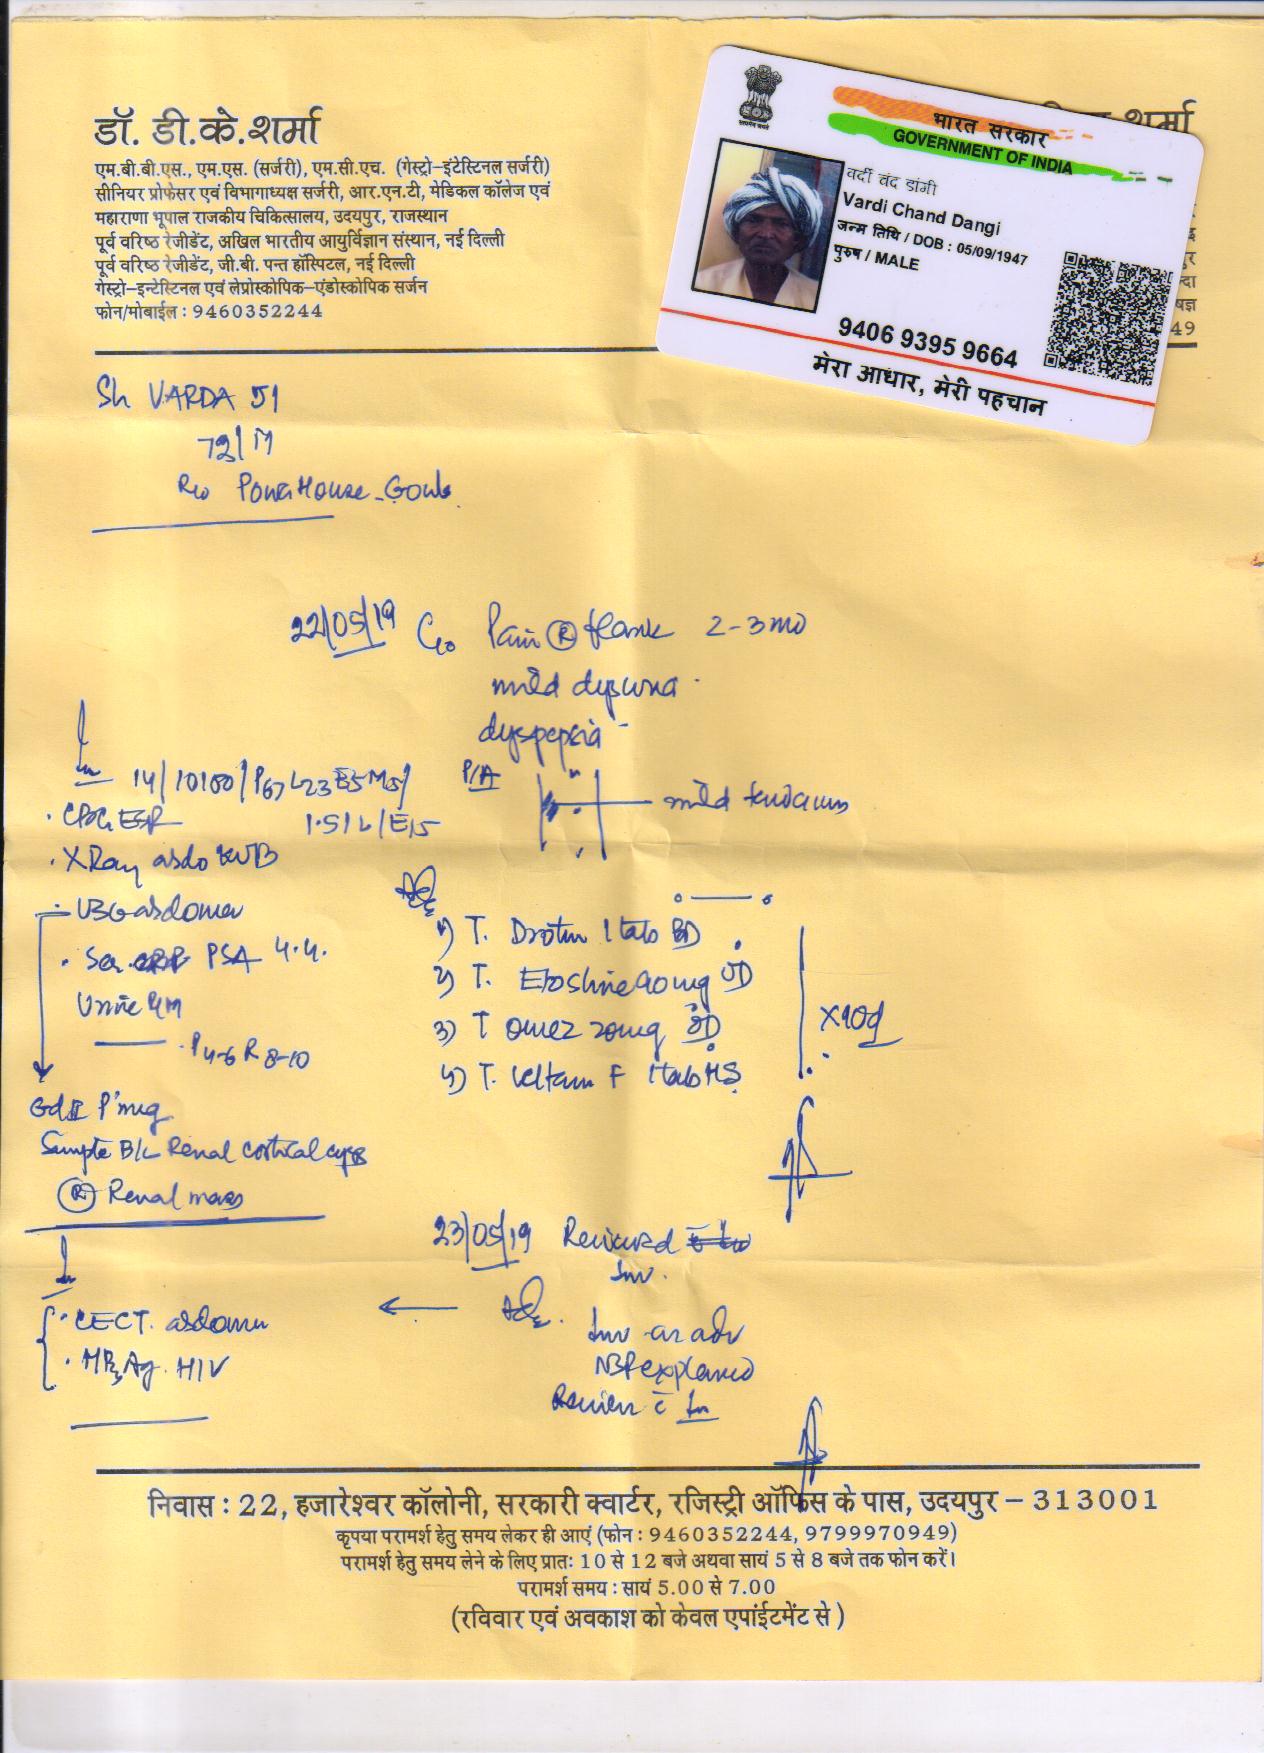 डॉ. डी.के.शर्मा
एम.बी.बी.एस., एम.एस. (सर्जरी), एम.सी.एच. (गेस्ट्रो-इंटेस्टिनल सर्जरी)
सीनियर प्रोफेसर एवं विभागाध्यक्ष सर्जरी, आर.एन.टी, मेडिकल कॉलेज एवं
महाराणा भूपाल राजकीय चिकित्सालय, उदयपुर, राजस्थान
पूर्व वरिष्ठ रेजीडेंट, अखिल भारतीय आयुर्विज्ञान संस्थान, नई दिल्ली
पूर्व वरिष्ठ रेजीडेंट, जी.बी. पन्त हॉस्पिटल, नई दिल्ली
गेस्ट्रो-इन्टेस्टिनल एवं लेप्रोस्कोपिक-एंडोस्कोपिक सर्जन
फोन/मोबाईल : 9460352244
शर्मा
49
भारत सरकार
GOVERNMENT OF INDIA
वर्दी चंद डांगी
Vardi Chand Dangi
जन्म तिथि / DOB : 05/09/1947
पुरुष / MALE
9406 9395 9664
मेरा आधार, मेरी पहचान
Sh VARDA JI
72/M
R/o Power House
22/05/19 C/o Pain (R) flank 2-3 mo
mild dysuria
dyspepsia
14/10100/P67 L23 E5 M5/
P/A
mild
CBC, ESR
X Ray abdo KUB
USG abdomen
PSA 4.4.
Urine
P 4-6 R 8-10
Adv
1) T. Drotin 1 tab BD
2) T. 90mg OD
3) T Omez 20mg OD
4) T. Veltam F 1 tab HS
X10d
Gd II P'meg
Simple B/L Renal cortical cysts
(R) Renal mass
23/05/19 Reviewed
Inv.
CECT. abdomen
HBsAg. HIV
Adv.
Inv as adv
explained
Review c Inv
निवास : 22, हजारेश्वर कॉलोनी, सरकारी क्वार्टर, रजिस्ट्री ऑफिस के पास, उदयपुर – 313001
कृपया परामर्श हेतु समय लेकर ही आएं (फोन : 9460352244, 9799970949)
परामर्श हेतु समय लेने के लिए प्रातः 10 से 12 बजे अथवा सायं 5 से 8 बजे तक फोन करें।
परामर्श समय : सायं 5.00 से 7.00
(रविवार एवं अवकाश को केवल एपांईटमेंट से )